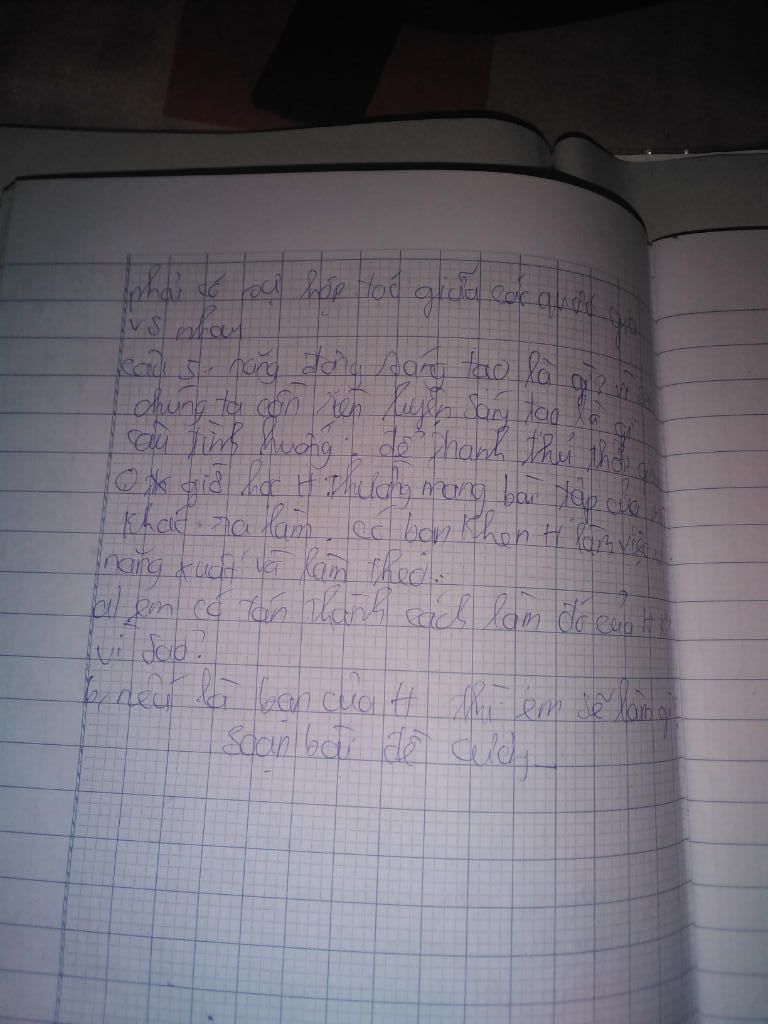 phải có sự hợp tác giữa các quốc gia
vs nhau
câu 5: năng động sáng tạo là gì? vì
chúng ta cần rèn luyện sáng tạo là gì
câu tình huống: để tranh thủ thời
giờ học H thường mang bài tập của
khác ra làm. có bạn khen H làm việc
năng xuất và làm theo.
a) em có tán thành cách làm đó của H
vì sao?
b, nếu là bạn của H thì em sẽ làm gì
soạn bài đề cương